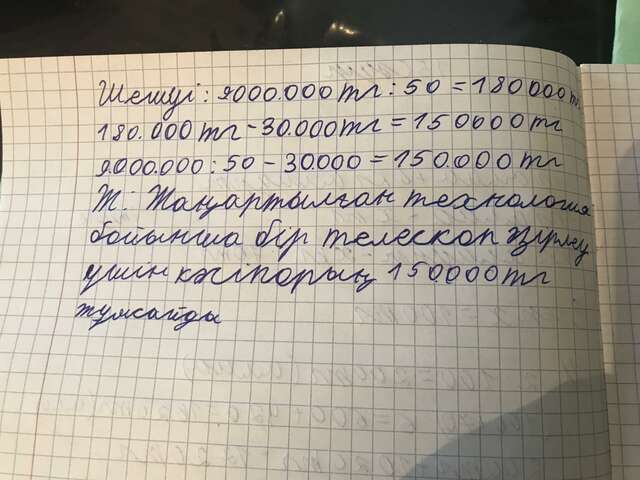 Шешуі: 9000.000 тг : 50 = 180000 тг
180.000 тг - 30.000 тг = 150000 тг
9.000.000 : 50 - 30.000 = 150.000 тг
Ж: Жаңартылған технология
бойынша бір телескоп әзірлеу
үшін кәсіпорың 150.000 тг
жұмсайды